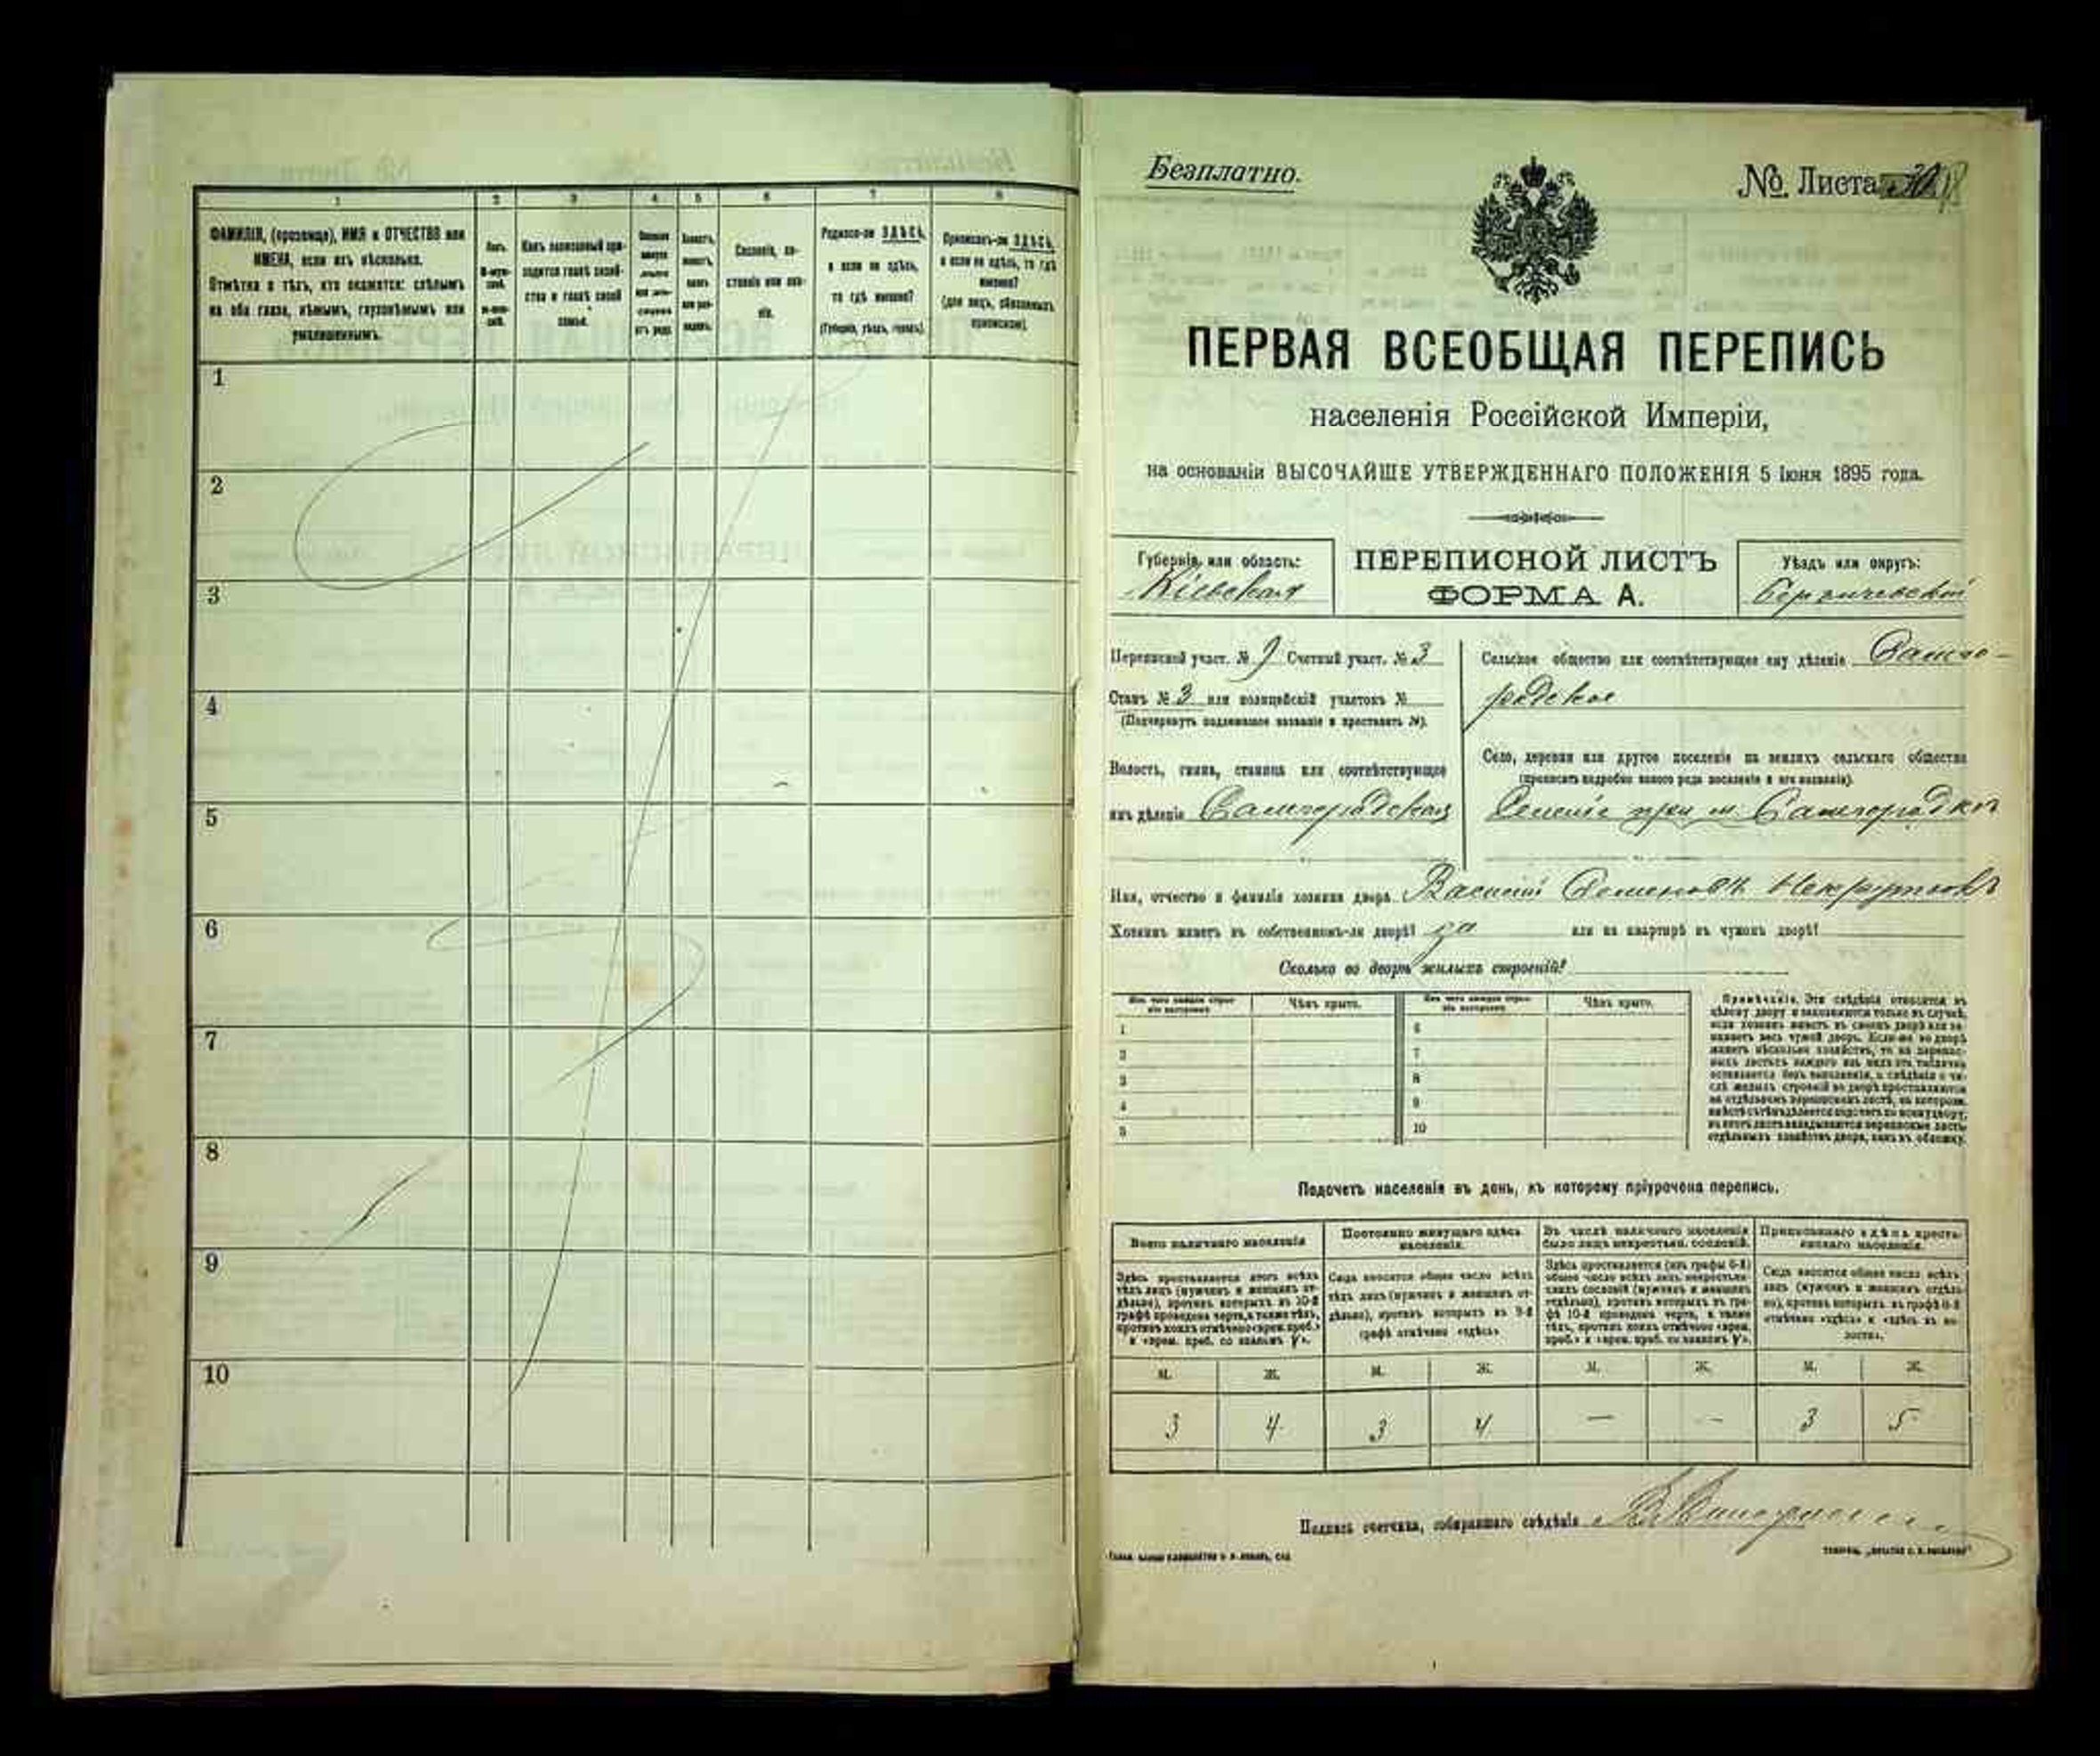 1 2 3 4 5 6 7 8
ФАМИЛІЯ, (прозвище), ИМЯ и ОТЧЕСТВО или
ИМЕНА, если ихъ нѣсколько.
Отмѣтка о тѣхъ, кто окажется: слѣпымъ
на оба глаза, нѣмымъ, глухонѣмымъ или
умалишеннымъ.
Полъ.
Какъ записанный при-
ходится главѣ хозяй-
ства и главѣ своей
семьи.
Сословіе, со-
стояніе или зва-
ніе.
Родился-ли ЗДѢСЬ,
а если не здѣсь,
то гдѣ именно?
(Губернія, уѣздъ, городъ).
Приписанъ-ли ЗДѢСЬ,
а если не здѣсь, то гдѣ
именно?
(для лицъ, обязанныхъ
припискою).
1
2
3
4
5
6
7
8
9
10
Безплатно.
№ Листа
ПЕРВАЯ ВСЕОБЩАЯ ПЕРЕПИСЬ
населенія Россійской Имперіи,
на основаніи ВЫСОЧАЙШЕ УТВЕРЖДЕННАГО ПОЛОЖЕНІЯ 5 Іюня 1895 года.
Губернія или область:
Кіевская
ПЕРЕПИСНОЙ ЛИСТЪ
ФОРМА А.
Уѣздъ или округъ:
Бердичевскій
Переписной участ. № 9 Счетный участ. № 3
Станъ № 3 или полицейскій участокъ №
(Подчеркнуть надлежащее названіе и проставить №).
Волость, гмина, станица или соотвѣтствующее
имъ дѣленіе Самгородская
Сельское общество или соотвѣтствующее ему дѣленіе Самго-
родское
Село, деревня или другое поселеніе на земляхъ сельскаго общества
(прописать подробно какого рода поселеніе и его названіе).
Селеніе при м. Самгородкѣ
Имя, отчество и фамилія хозяина двора Василій Семеновъ
Хозяинъ живетъ въ собственномъ-ли дворѣ? да или на квартирѣ въ чужомъ дворѣ?
Сколько во дворѣ жилыхъ строеній?
Изъ чего каждое строе-
ніе построено.
Чѣмъ крыто.
Изъ чего каждое строе-
ніе построено.
Чѣмъ крыто.
1 6
2 7
3 8
4 9
5 10
Примѣчаніе. Эти свѣдѣнія относятся къ
цѣлому двору и заполняются только въ случаѣ,
если хозяинъ живетъ въ своемъ дворѣ или за-
нимаетъ весь чужой дворъ. Если-же во дворѣ
живетъ нѣсколько хозяйствъ, то на перепис-
ныхъ листахъ каждаго изъ нихъ эта табличка
оставляется безъ заполненія, а свѣдѣнія о чи-
слѣ жилыхъ строеній во дворѣ проставляются
на отдѣльномъ переписномъ листѣ, на которомъ
вмѣстѣ съ тѣмъ дѣлается подсчетъ по всему двору,
въ этотъ листъ вкладываются переписные листы
отдѣльныхъ хозяйствъ двора, какъ въ обложку.
Подсчетъ населенія въ день, къ которому пріурочена перепись.
Всего наличнаго населенія
Здѣсь проставляется итогъ всѣхъ
тѣхъ лицъ (мужчинъ и женщинъ от-
дѣльно), противъ которыхъ въ 10-й
графѣ проведена черта, а также тѣхъ,
противъ коихъ отмѣчено «врем. преб.»
Постоянно живущаго здѣсь
населенія.
Сюда вносится общее число всѣхъ
тѣхъ лицъ (мужчинъ и женщинъ от-
дѣльно), противъ которыхъ въ 9-й
графѣ отмѣчено «здѣсь»
Въ числѣ наличнаго населенія
было лицъ некрестьян. сословій.
Здѣсь проставляется (изъ графы 6-й)
общее число всѣхъ лицъ некрестьян-
скихъ сословій (мужчинъ и женщинъ
отдѣльно), противъ которыхъ въ гра-
фѣ 10-й проведена черта, а также
тѣхъ, противъ коихъ отмѣчено «врем.
Приписаннаго здѣсь кресть-
янскаго населенія.
Сюда вносится общее число всѣхъ
лицъ (мужчинъ и женщинъ отдѣль-
но), противъ которыхъ въ графѣ 8-й
отмѣчено «здѣсь» и «здѣсь въ во-
лости».
М. Ж. М. Ж. М. Ж. М. Ж.
3 4 3 4 — — 3 5
Подпись счетчика, собиравшаго свѣдѣнія